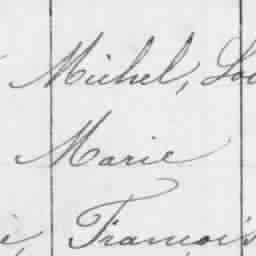 Michel, Lou
Marie
e, François